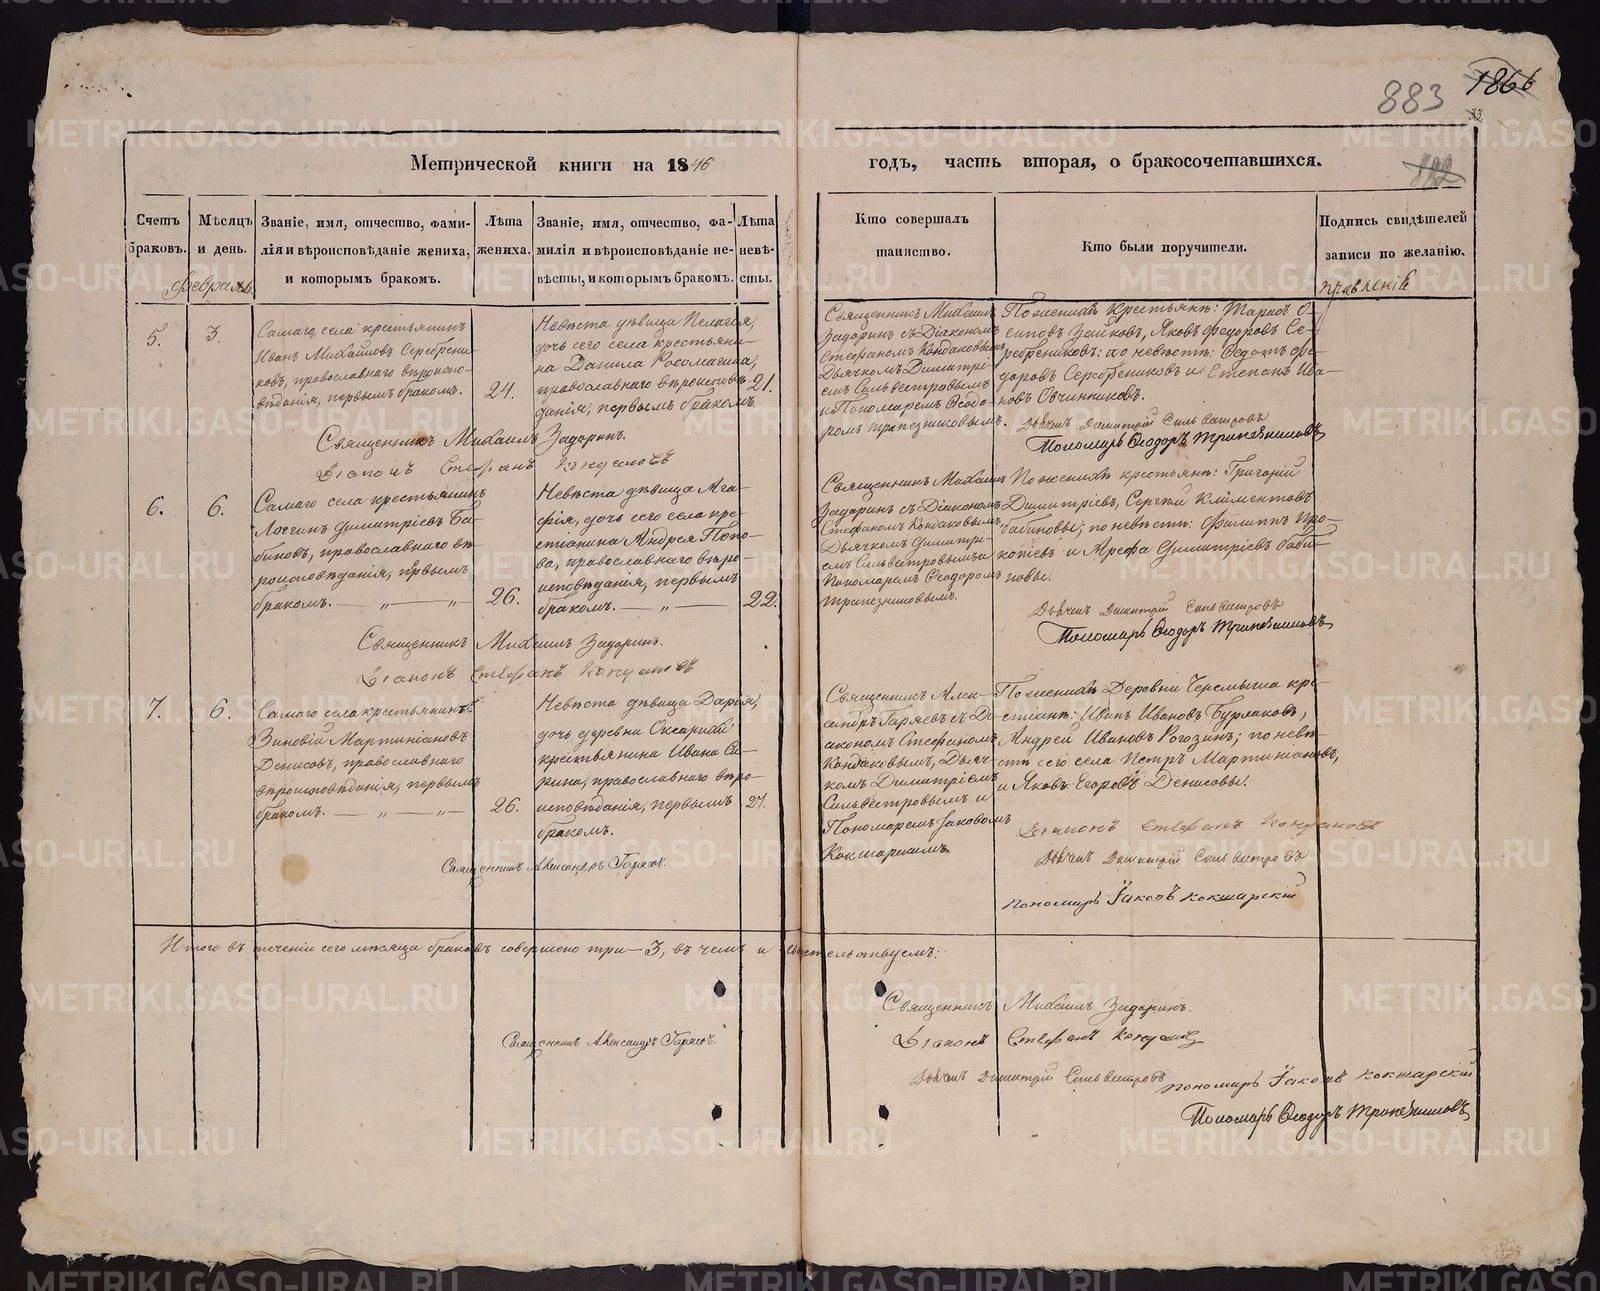 883
1866
Метрической книги на 1846
годъ, часть вторая, о бракосочетавшихся.
Счетъ браковъ.
Мѣсяцъ и день.
Званіе, имя, отчество, фами-
лія и вѣроисповѣданіе жениха,
и которымъ бракомъ.
Лѣта
жениха.
Званіе, имя, отчество, фа-
милія и вѣроисповѣданіе не-
вѣсты, и которымъ бракомъ.
Лѣта
невѣ-
сты.
Кто совершалъ
таинство.
Кто были поручители.
Подпись свидѣтелей
записи по желанію.
Февраль.
5.
3.
Самаго села крестьянинъ
Иванъ Михайловъ Серебрени-
ковъ, православнаго вѣроиспо-
вѣданія, первымъ бракомъ.
24.
Невѣста дѣвица Пелагея,
дочь сего села крестьяни-
на Данила Росомагина,
православнаго вѣроисповѣ-
данія, первымъ бракомъ.
21.
Священникъ Михаилъ
Задоринъ съ Діакономъ
Стефаномъ Кондаковымъ,
Дьячкомъ Димитрі-
емъ Сильвестровымъ
и Пономаремъ Ѳеодо-
ромъ Трапезниковымъ.
По женихѣ крестьяне: Тарасъ О-
сиповъ Зайковъ, Яковъ Федоровъ Се-
ребрениковъ: по невѣстѣ: Ѳедотъ Фе-
доровъ Серебрениковъ и Степанъ Ива-
новъ Овчинниковъ.
Дьячекъ Димитрій Сильвестровъ
Пономарь Ѳеодоръ Трапезниковъ
Священникъ Михаилъ Задоринъ.
Діаконъ Стефанъ Кондаковъ
6.
6.
Самаго села крестьянинъ
Логгинъ Димитріевъ Ба-
биновъ, православнаго вѣ-
роисповѣданія, первымъ
бракомъ. — „ — „ —
26.
Невѣста дѣвица Ага-
фія, дочь сего села кре-
стіанина Андрея Попо-
ва, православнаго вѣро-
исповѣданія, первымъ
бракомъ. — „ —
22.
Священникъ Михаилъ
Задоринъ съ Діакономъ
Стефаномъ Кондаковымъ,
Дьячкомъ Димитрі-
емъ Сильвестровымъ и
Пономаремъ Ѳеодоромъ
Трапезниковымъ.
По женихѣ крестьяне: Григорій
Димитріевъ, Сергѣй Климентовъ
Бабиновы; по невѣстѣ: Филиппъ Про-
копіевъ и Арефа Димитріевъ Баби-
новы.
Дьячекъ Димитрій Сильвестровъ
Пономарь Ѳеодоръ Трапезниковъ
Священникъ Михаилъ Задоринъ.
Діаконъ Стефанъ Кондаковъ
7.
6.
Самаго села крестьянинъ
Зиновій Мартиніановъ
Денисовъ, православнаго
вѣроисповѣданія, первымъ
бракомъ. — „ — „ —
26.
Невѣста дѣвица Дарія,
дочь деревни
крестьянина Ивана
православнаго вѣро-
исповѣданія, первымъ
бракомъ.
21.
Священникъ Алек-
сандръ Гаряевъ съ Ді-
акономъ Стефаномъ
Кондаковымъ, Дьяч-
комъ Димитріемъ
Сильвестровымъ и
Пономаремъ Іаковомъ
Кокшарскимъ
По женихѣ Деревни Черемыша кре-
стіане: Иванъ Ивановъ Бурлаковъ,
Андрей Ивановъ Рогозинъ; по невѣ-
стѣ сего села Петръ Мартиніановъ,
и Яковъ Егоровъ Денисовы.
Діаконъ Стефанъ Кондаковъ
Дьячекъ Димитрій Сильвестровъ
Пономарь Іаковъ Кокшарскій
Священникъ Александръ Гаряевъ.
Итого въ теченіи сего мѣсяца браковъ совершено три — 3, въ чемъ и свидетельствуемъ:
Священникъ Михаилъ Задоринъ.
Священникъ Александръ Гаряевъ.
Діаконъ Стефанъ Кондаковъ
Дьячекъ Димитрій Сильвестровъ
Пономарь Іаковъ Кокшарскій
Пономарь Ѳеодоръ Трапезниковъ
METRIKI.GASO-URAL.RU